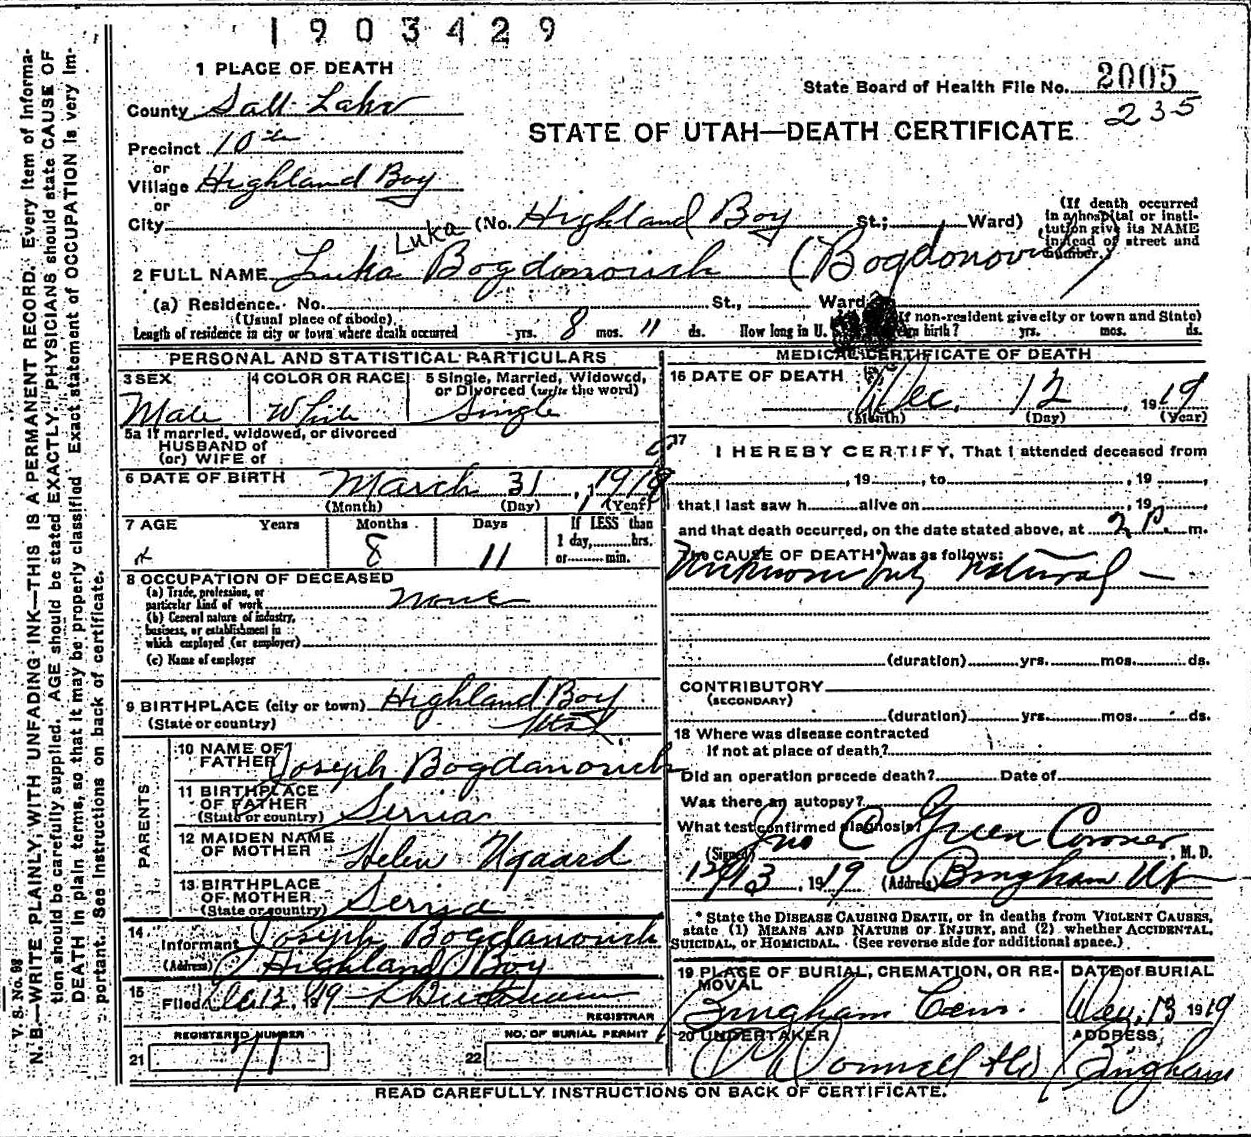 1903429
1 PLACE OF DEATH
State Board of Health File No. 2005
235
County Salt Lake
STATE OF UTAH—DEATH CERTIFICATE
Precinct 10th
or
Village Highland Boy
or
City (No. Highland Boy St.; Ward)
(If death occurred in a hospital or institution give its NAME instead of street and number.)
Luka
2 FULL NAME Luka Bogdonovich (Bogdonovich)
(a) Residence. No. St., Ward
(Usual place of abode) (If non-resident give city or town and State)
Length of residence in city or town where death occurred yrs. 8 mos. 11 ds. How long in U. S., if of foreign birth? yrs. mos. ds.
PERSONAL AND STATISTICAL PARTICULARS
3 SEX 4 COLOR OR RACE 5 Single, Married, Widowed, or Divorced (write the word)
Male White Single
5a If married, widowed, or divorced
HUSBAND of
(or) WIFE of
6 DATE OF BIRTH March 31, 1919
(Month) (Day) (Year)
7 AGE Years Months Days If LESS than
1 day, hrs.
or min.
8 11
8 OCCUPATION OF DECEASED
(a) Trade, profession, or
particular kind of work none
(b) General nature of industry,
business, or establishment in
which employed (or employer)
(c) Name of employer
9 BIRTHPLACE (city or town) Highland Boy
(State or country) Utah
PARENTS
10 NAME OF FATHER Joseph Bogdanovich
11 BIRTHPLACE OF FATHER
(State or country) Servia
12 MAIDEN NAME OF MOTHER Helen
13 BIRTHPLACE OF MOTHER
(State or country) Servia
14
Informant Joseph Bogdanovich
(Address) Highland Boy
15
Filed Dec 13, 1919
REGISTRAR
REGISTERED NUMBER NO. OF BURIAL PERMIT
21 71 22
MEDICAL CERTIFICATE OF DEATH
16 DATE OF DEATH
Dec. 12, 1919
(Month) (Day) (Year)
17
I HEREBY CERTIFY, That I attended deceased from
, 19 , to , 19 ,
that I last saw h alive on , 19 ,
and that death occurred, on the date stated above, at 2 P. m.
The CAUSE OF DEATH* was as follows:
Unknown but natural —
(duration) yrs. mos. ds.
CONTRIBUTORY
(SECONDARY)
(duration) yrs. mos. ds.
18 Where was disease contracted
if not at place of death?
Did an operation precede death? Date of
Was there an autopsy?
What test confirmed diagnosis?
(Signed) Jno C Green Coroner, M. D.
12/13, 1919 (Address) Bingham Ut
* State the DISEASE CAUSING DEATH, or in deaths from VIOLENT CAUSES,
state (1) MEANS AND NATURE OF INJURY, and (2) whether ACCIDENTAL,
SUICIDAL, or HOMICIDAL. (See reverse side for additional space.)
19 PLACE OF BURIAL, CREMATION, OR REMOVAL DATE of BURIAL
Bingham Cem. Dec. 13 1919
20 UNDERTAKER ADDRESS
O'Donnell & Co Bingham
READ CAREFULLY INSTRUCTIONS ON BACK OF CERTIFICATE.
V. S. No. 98
N. B.—WRITE PLAINLY, WITH UNFADING INK—THIS IS A PERMANENT RECORD. Every item of information should be carefully supplied. AGE should be stated EXACTLY. PHYSICIANS should state CAUSE OF DEATH in plain terms, so that it may be properly classified. Exact statement of OCCUPATION is very important. See instructions on back of certificate.